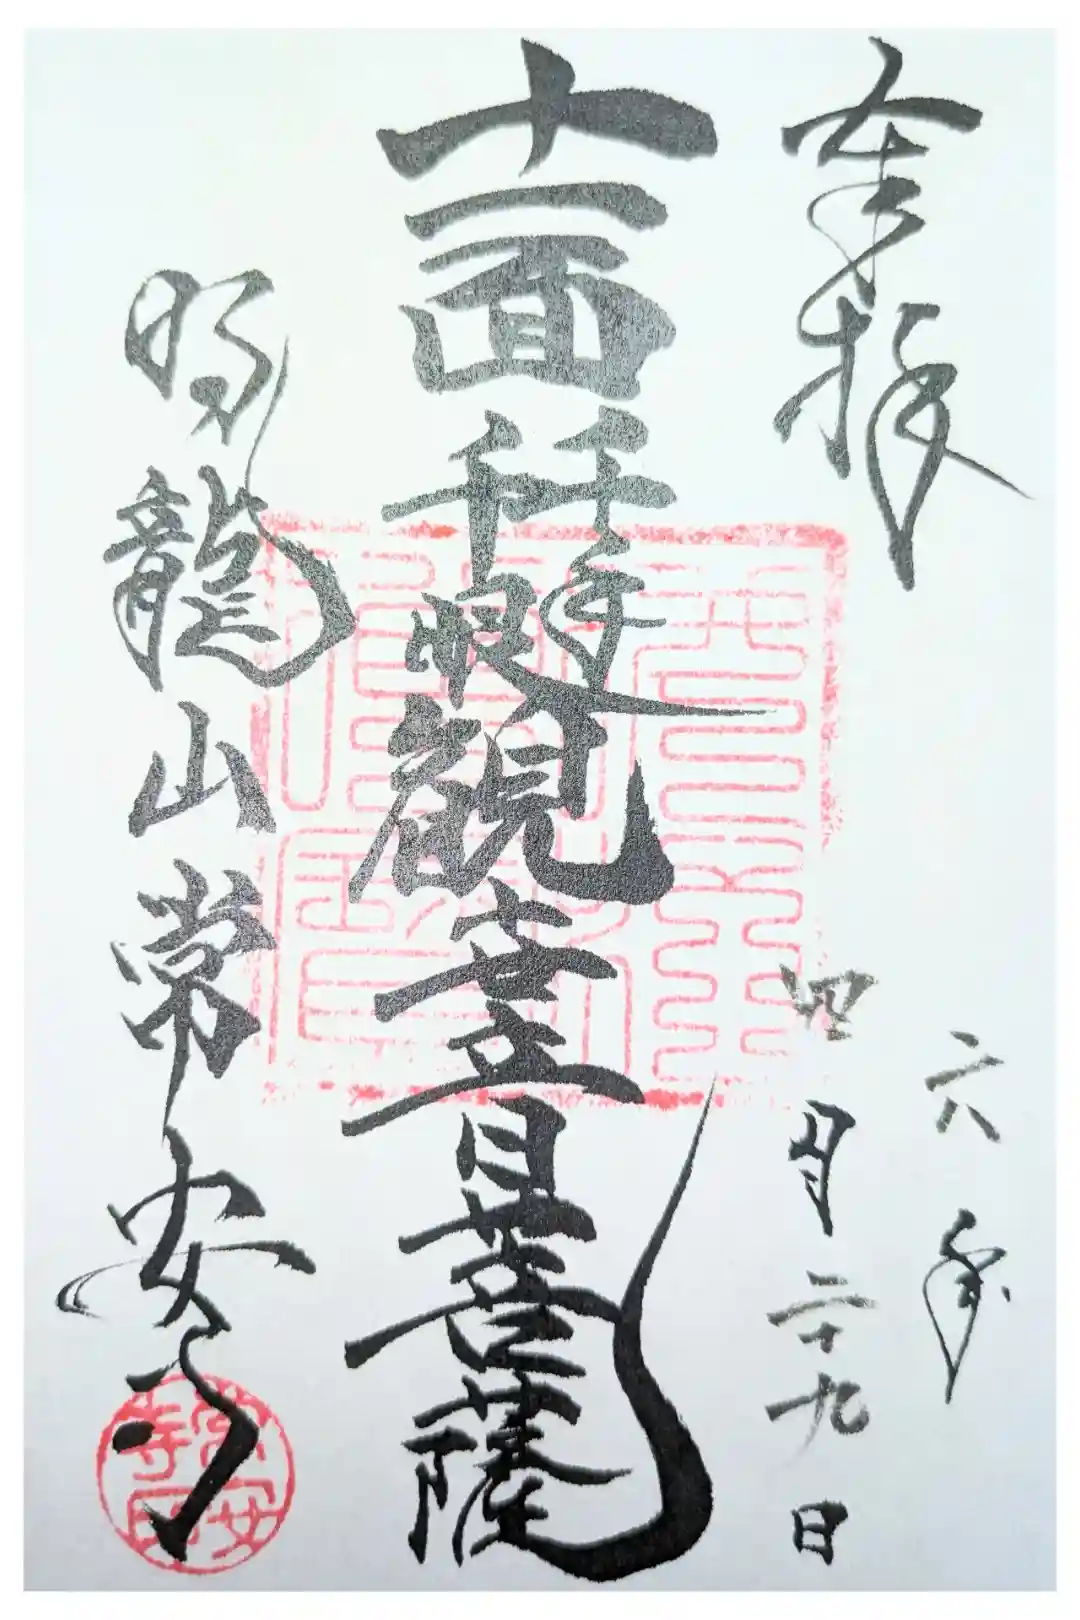 奉拝
六年
四月二十九日
十一面千手千眼観世音菩薩
明龍山常安寺
常安寺印